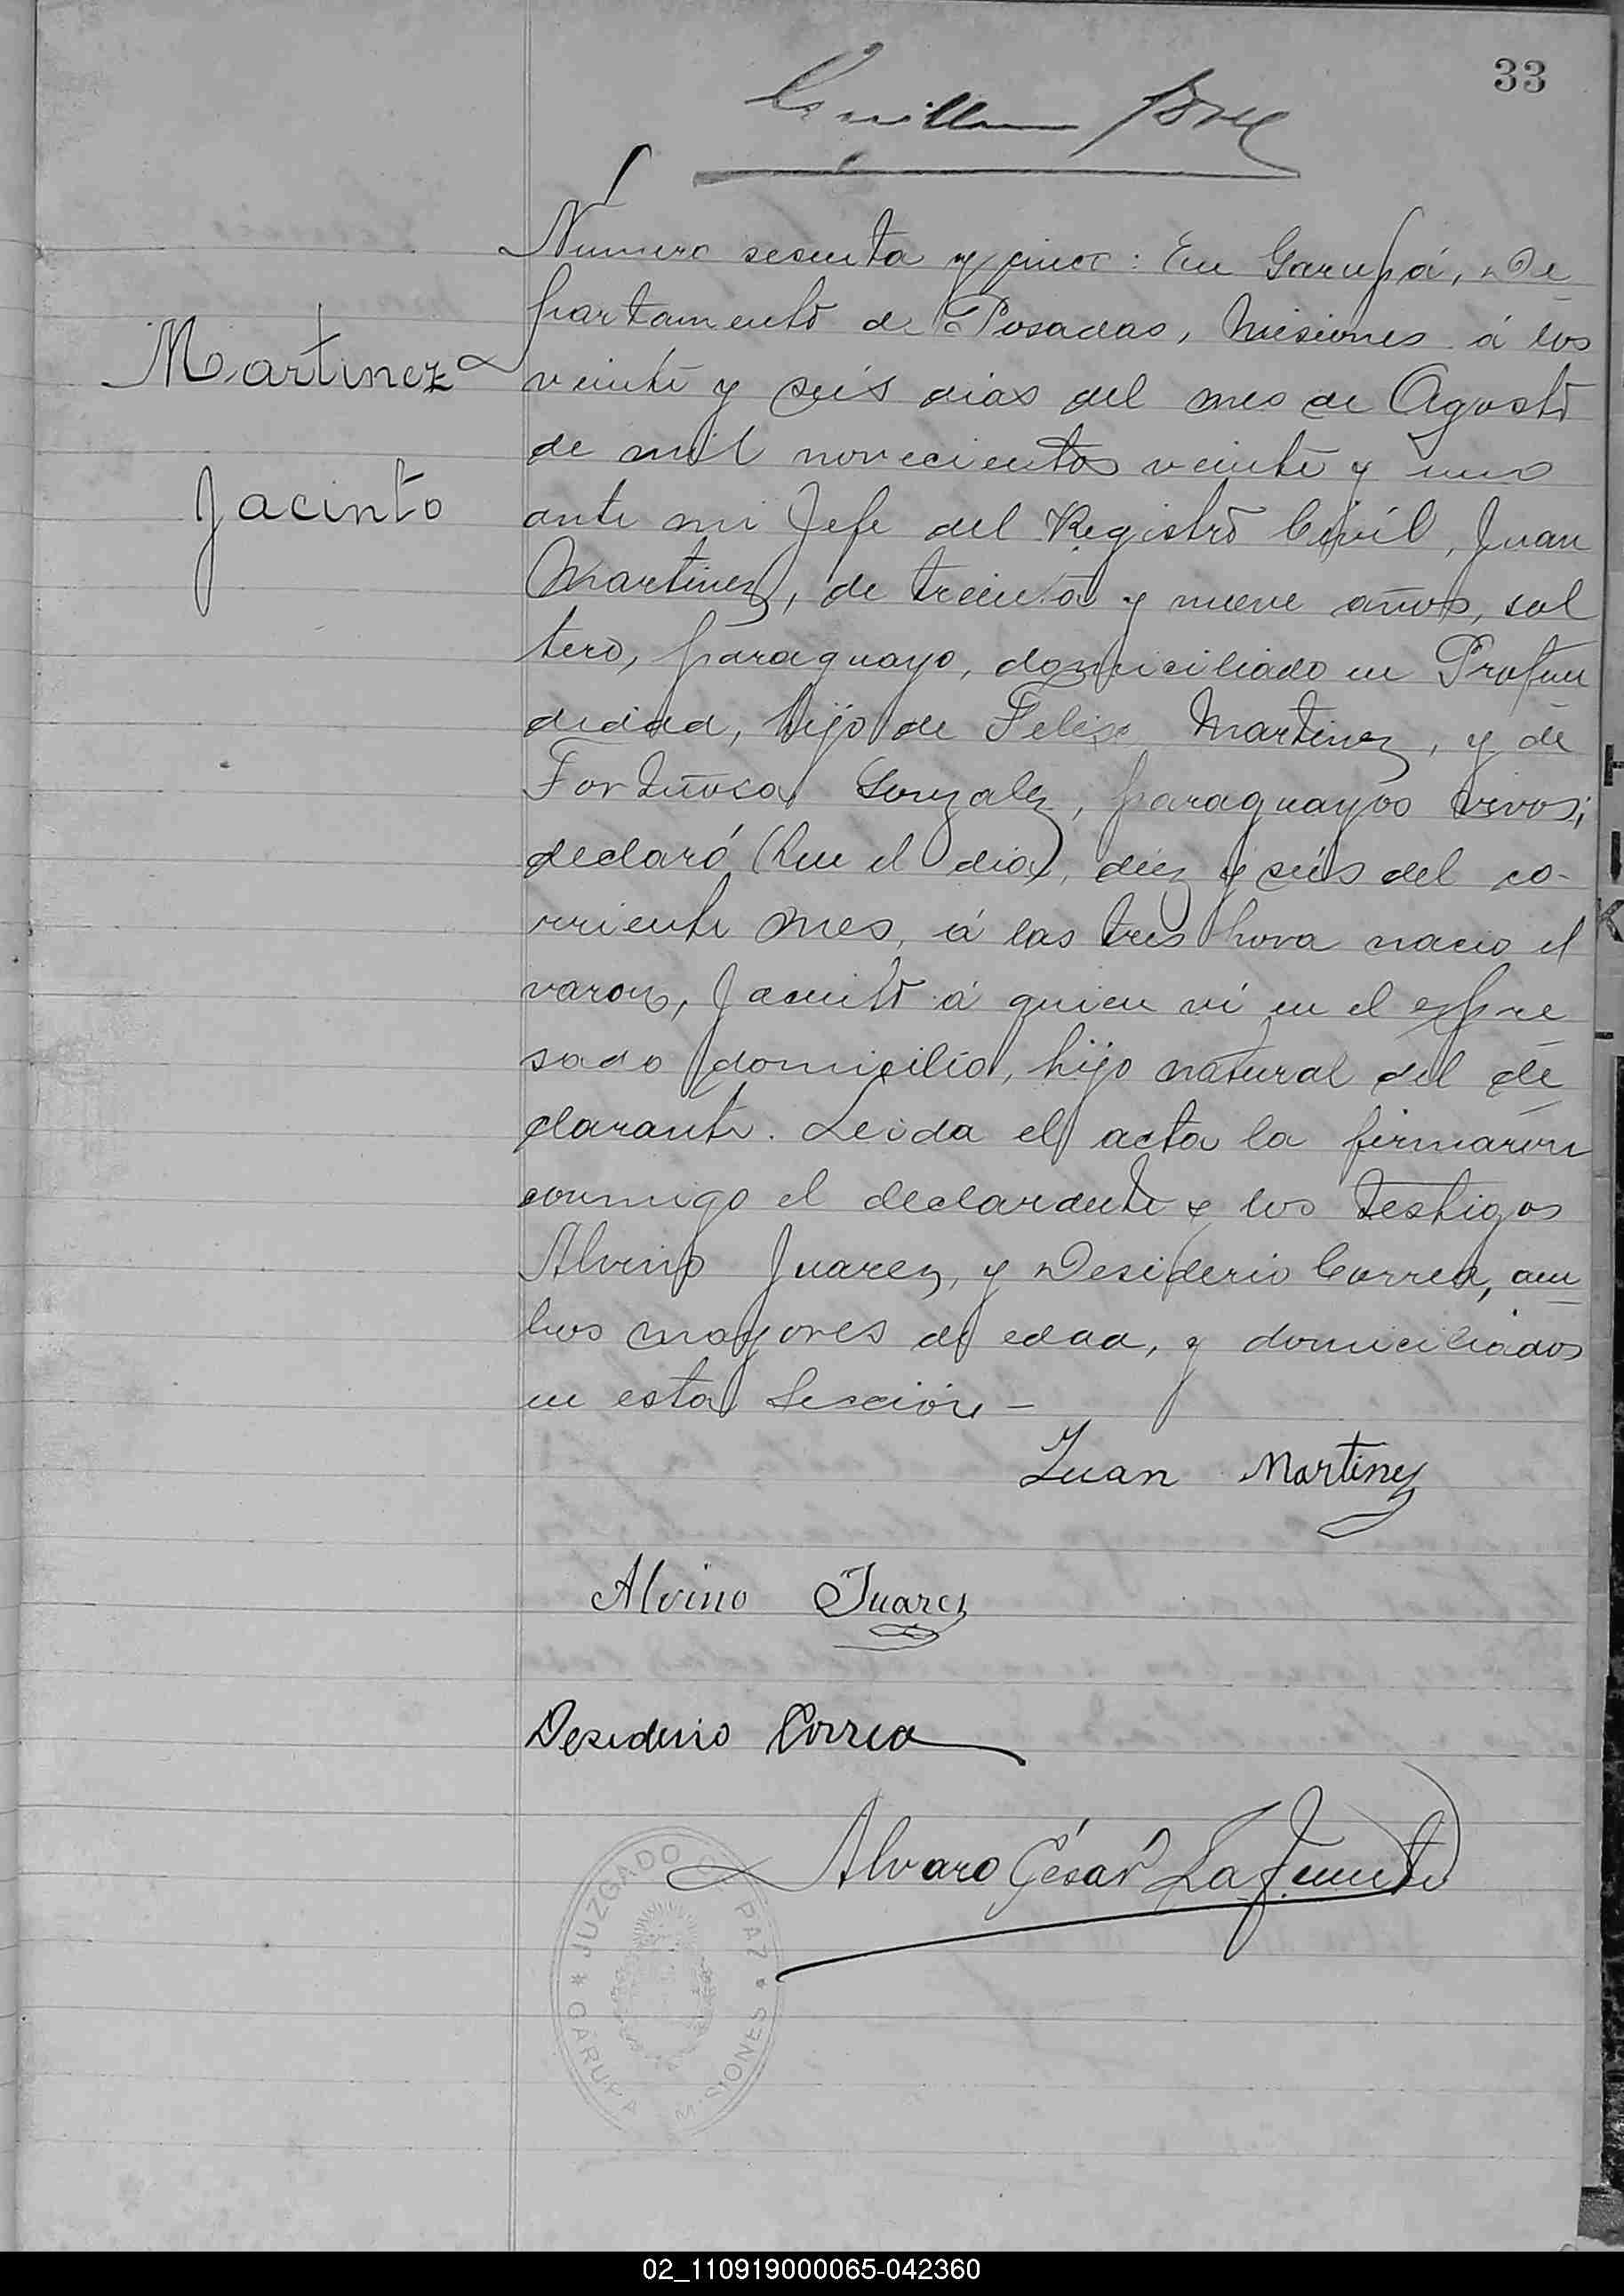 33
Numero sesenta y cinco: En Garupá, De
partamento de Posadas, Misiones á los
Martinez
veinte y seis dias del mes de Agosto
de mil novecientos veinte y uno
Jacinto
ante mi Jefe del Registro Civil, Juan
Martinez, de treinta y nueve años, sol
tero, paraguayo, domiciliado en Profun
didad, hijo de Felix Martinez, y de
Fortuñosa Gonzalez, paraguayos vivos;
declaró Que el dia, diez y seis del co-
rriente mes, á las tres hora nacio el
varon, Jacinto á quien ví en el expre
sado domicilio, hijo natural del de
clarante. Leida el acta la firmaron
conmigo el declarante y los testigos
Alvino Juarez, y Desiderio Correa, am
bos mayores de edad, y domiciliados
en esta Sección -
Juan Martinez
Alvino Juarez
Desiderio Correa
Alvaro César Lafuente
JUZGADO DE PAZ * MISIONES
* GARUPA
02_110919000065-042360